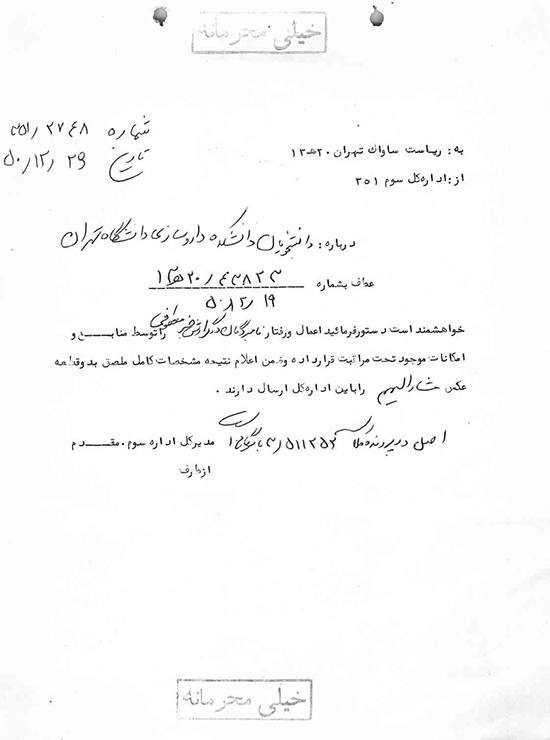 خیلی محرمانه
شماره ۲۷۴۸ / ۳۵۱
تاریخ ۲۹ / ۱۲ / ۵۰
به : ریاست ساواك تهران ۲۰ هـ ۱۳
از : اداره کل سوم ۳۵۱
درباره : دانشجویان دانشکده داروسازی دانشگاه تهران
عطف بشماره ۴۳۸۲۳ / ۲۰ هـ ۱۳
۱۹ / ۱۲ / ۵۰
خواهشمند است دستور فرمائید اعمال و رفتار نامبردگان در گزارش خبر معطوفی را توسط منابع و
امکانات موجود تحت مراقبت قرار داده و ضمن اعلام نتیجه مشخصات کامل ملصق بدو قطعه
عکس مشارالیهم را باین اداره کل ارسال دارند .
اصل در پرونده کلاسه ۵۱۱۲۵۲ بایگانی است
مدیر کل اداره سوم . مقدم
از طرف
خیلی محرمانه